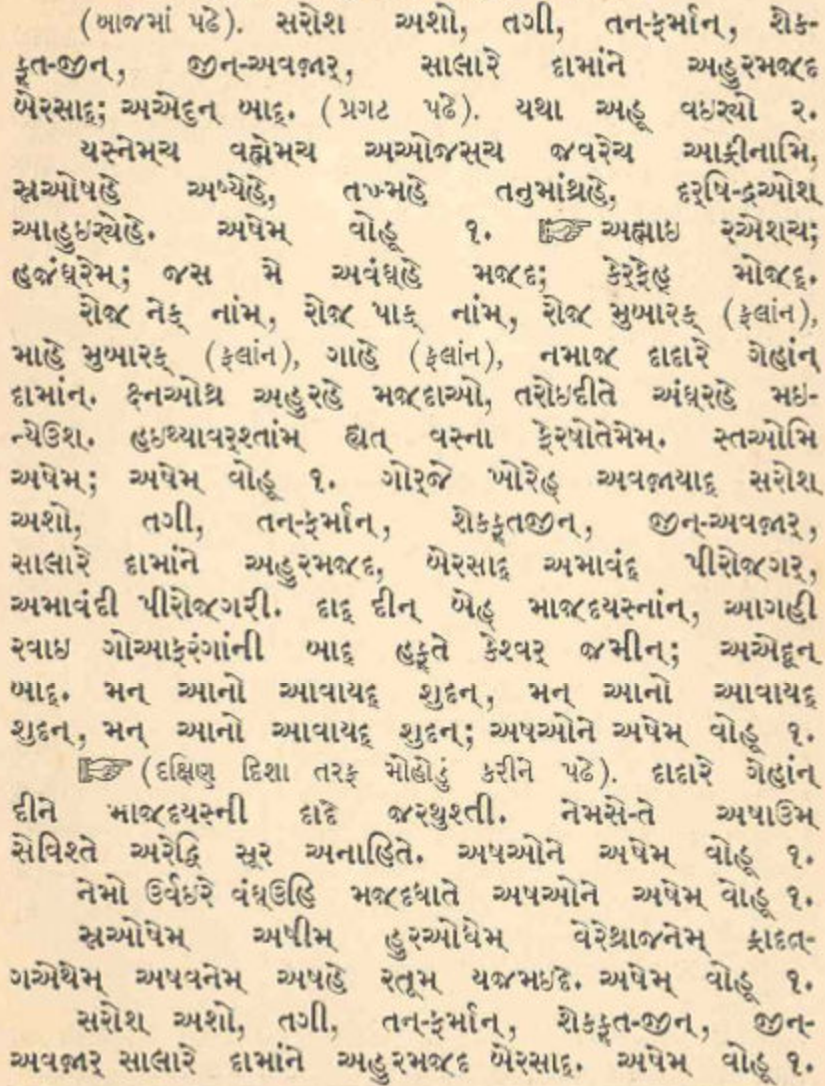 (બાજમાં પઢે). સરોશ અશો, તગી, તન-ફર્માન, શેક-
ફત-જીન, જીન-અવજાર, સાલારે દામાંને અહુરમજદ
બેરસાદ્; અએદુન બાદ્. (પ્રગટ પઢે). યથા અહૂ વઇર્યો ૨.
યસ્નેમ્ચ વહ્મેમ્ચ અઓજસ્ચ જવરેચ આફ્રીનામિ,
સ્રઓષહે અષ્યેહે, તખ્મહે તનુમાંથ્રહે, દર્ષિ-દ્રઓશ
આહુઇર્યેહે. અષેમ્ વોહૂ ૧. ☞ અહ્માઇ રએશચ;
હજંઘ્રેમ્; જસ મે અવંઘ્હે મજદ; કેર્ફેહ મોજદ્.
રોજ નેક્ નાંમ, રોજ પાક્ નાંમ, રોજ મુબારક્ (ફલાંન),
માહે મુબારક્ (ફલાંન), ગાહે (ફલાંન), નમાજ દાદારે ગેહાંન
દામાંન. ક્ષ્નઓથ્ર અહુરહે મજદાઓ, તરોઇદીતે અંઘ્રહે મઇ-
ન્યેઉશ. હઇથ્યાવર્શ્તાંમ્ હ્યત્ વસ્ના ફેરષોતેમેમ. સ્તઓમિ
અષેમ્; અષેમ્ વોહૂ ૧. ગોર્જે ખોરેહ અવજાયાદ્ સરોશ
અશો, તગી, તન-ફર્માન, શેકફતજીન, જીન-અવજાર્,
સાલારે દામાંને અહુરમજદ, બેરસાદ્ અમાવંદ્ પીરોજગર્,
અમાવંદી પીરોજગરી. દાદ્ દીન્ બેહ્ માજદયસ્નાંન, આગહી
રવાઇ ગોઆફરંગાંની બાદ્ હફતે કેશ્વર્ જમીન; અએદૂન
બાદ્. મન્ આનો આવાયદ્ શુદન, મન્ આનો આવાયદ્
શુદન્, મન્ આનો આવાયદ્ શુદન્; અષઓને અષેમ્ વોહૂ ૧.
☞ (દક્ષિણ દિશા તરફ મોહોડું કરીને પઢે). દાદારે ગેહાંન
દીને માજદયસ્ની દાદે જરથુશ્તી. નેમસે-તે અષાઉમ્
સેવિશ્તે અરેદ્વિ સૂર અનાહિતે. અષઓને અષેમ્ વોહૂ ૧.
નેમો ઉર્વઇરે વંઘ્ઉહિ મજદધાતે અષઓને અષેમ્ વોહૂ ૧.
સ્રઓષેમ્ અષીમ્ હુરઓધેમ્ વેરેથ્રાજનેમ્ ફ્રાદત્-
ગએથેમ્ અષવનેમ્ અષહે રતૂમ્ યજમઇદે. અષેમ્ વોહૂ ૧.
સરોશ અશો, તગી, તન-ફર્માન, શેકફત-જીન્, જીન-
અવજાર્ સાલારે દામાંને અહુરમજદ બેરસાદ્. અષેમ્ વોહૂ ૧.